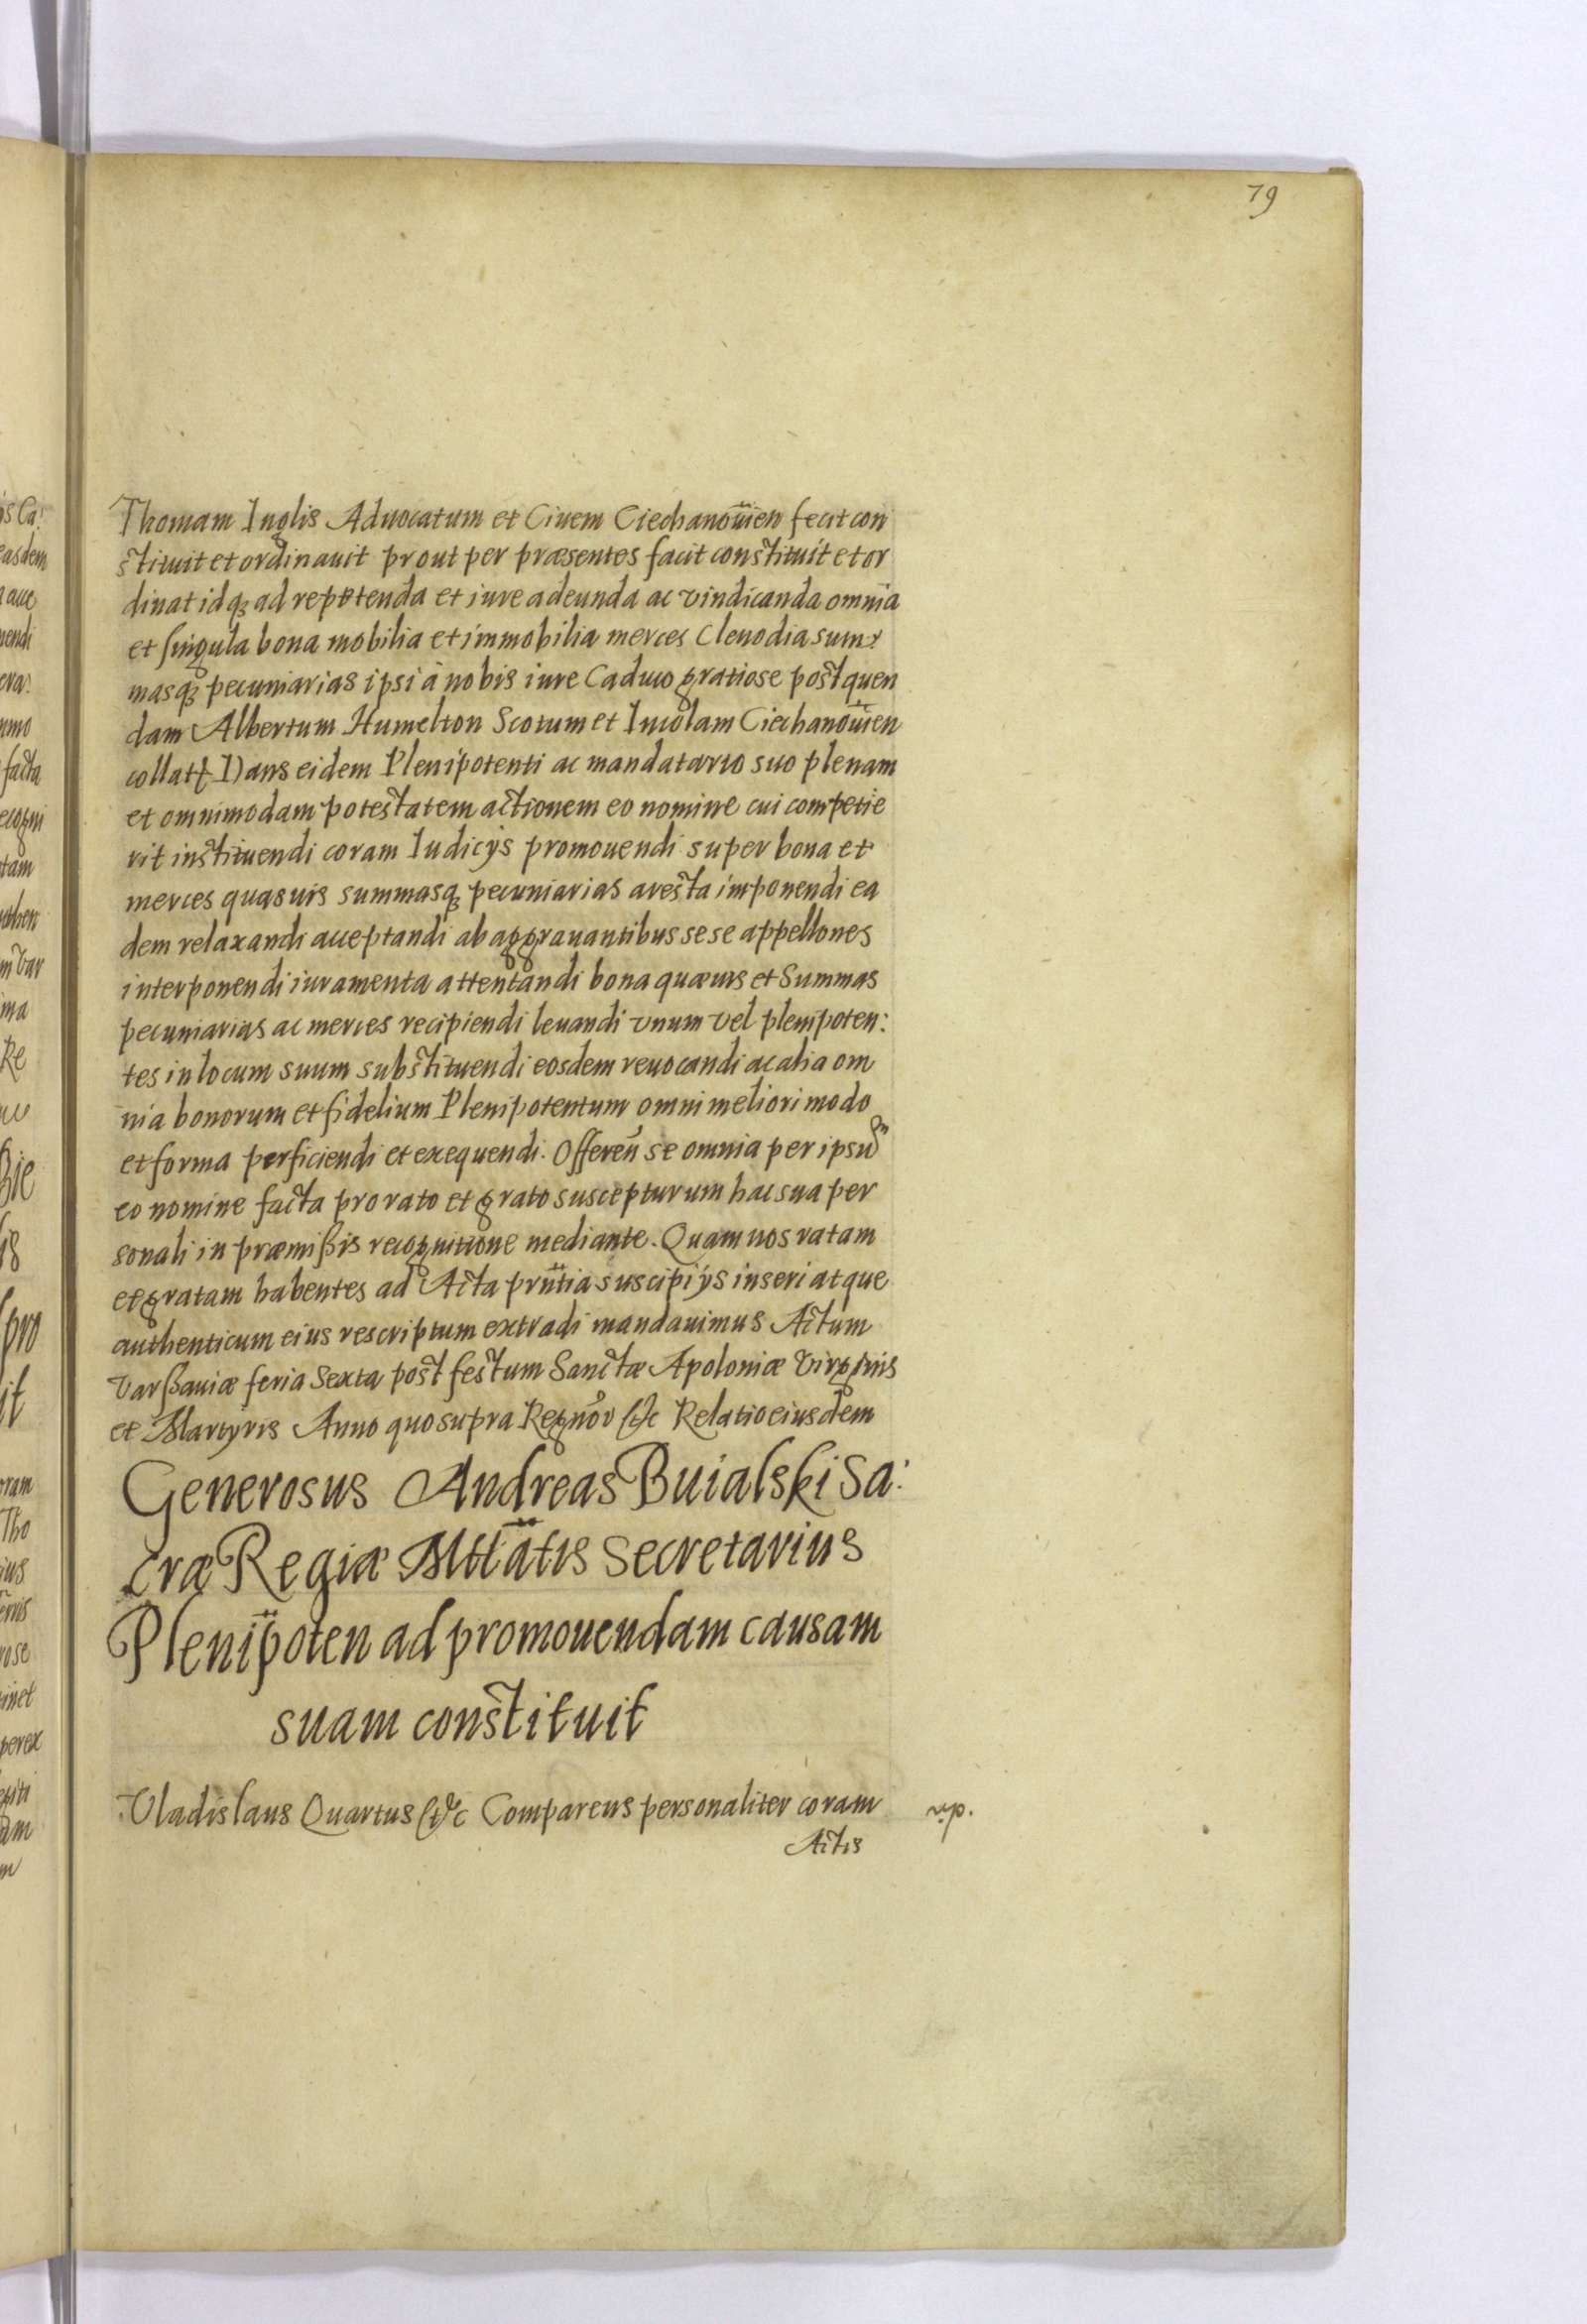 79
Thomam Inglis Aduocatum et Ciuem Ciechanouien fecit con
stituit et ordinauit prout per præsentes facit constituit et or
dinat idq; ad repetenda et iure adeunda ac vindicanda omnia
et singula bona mobilia et immobilia merces Clenodia sum
masq; pecuniarias ipsi à nobis iure Caduco gratiose post quen
dam Albertum Humelton Scotum et Incolam Ciechanouien
collatt Dans eidem Plenipotenti ac mandatario suo plenam
et omnimodam potestatem actionem eo nomine cui competie
rit instituendi coram Iudicÿs promouendi super bona et
merces quasuis summasq; pecuniarias aresta imponendi ea
dem relaxandi acceptandi ab aggrauantibus sese appellones
interponendi iuramenta attentandi bona quæuis et Summas
pecuniarias ac merces recipiendi leuandi vnum vel plenipoten:
tes in locum suum substituendi eosdem reuocandi ac alia om
nia bonorum et fidelium Plenipotentum omni meliori modo
et forma perficiendi et exequendi. Offeren se omnia per ipsum
eo nomine facta pro rato et grato suscepturum hac sua per
sonali in præmißis recognitione mediante. Quam nos ratam
et gratam habentes ad Acta prntia suscipi ÿs inseri atque
authenticum eius rescriptum extradi mandauimus Actum
Varßauiæ feria Sexta post festum Sanctæ Apoloniæ Virginis
et Martyris Anno quo supra Regnor etc Relatio eiusdem
Generosus Andreas Buialski Sa:
cræ Regiæ Mttatis Secretarius
Plenipoten ad promouendam causam
suam constituit
Vladislaus Quartus etc Comparens personaliter coram
Actis